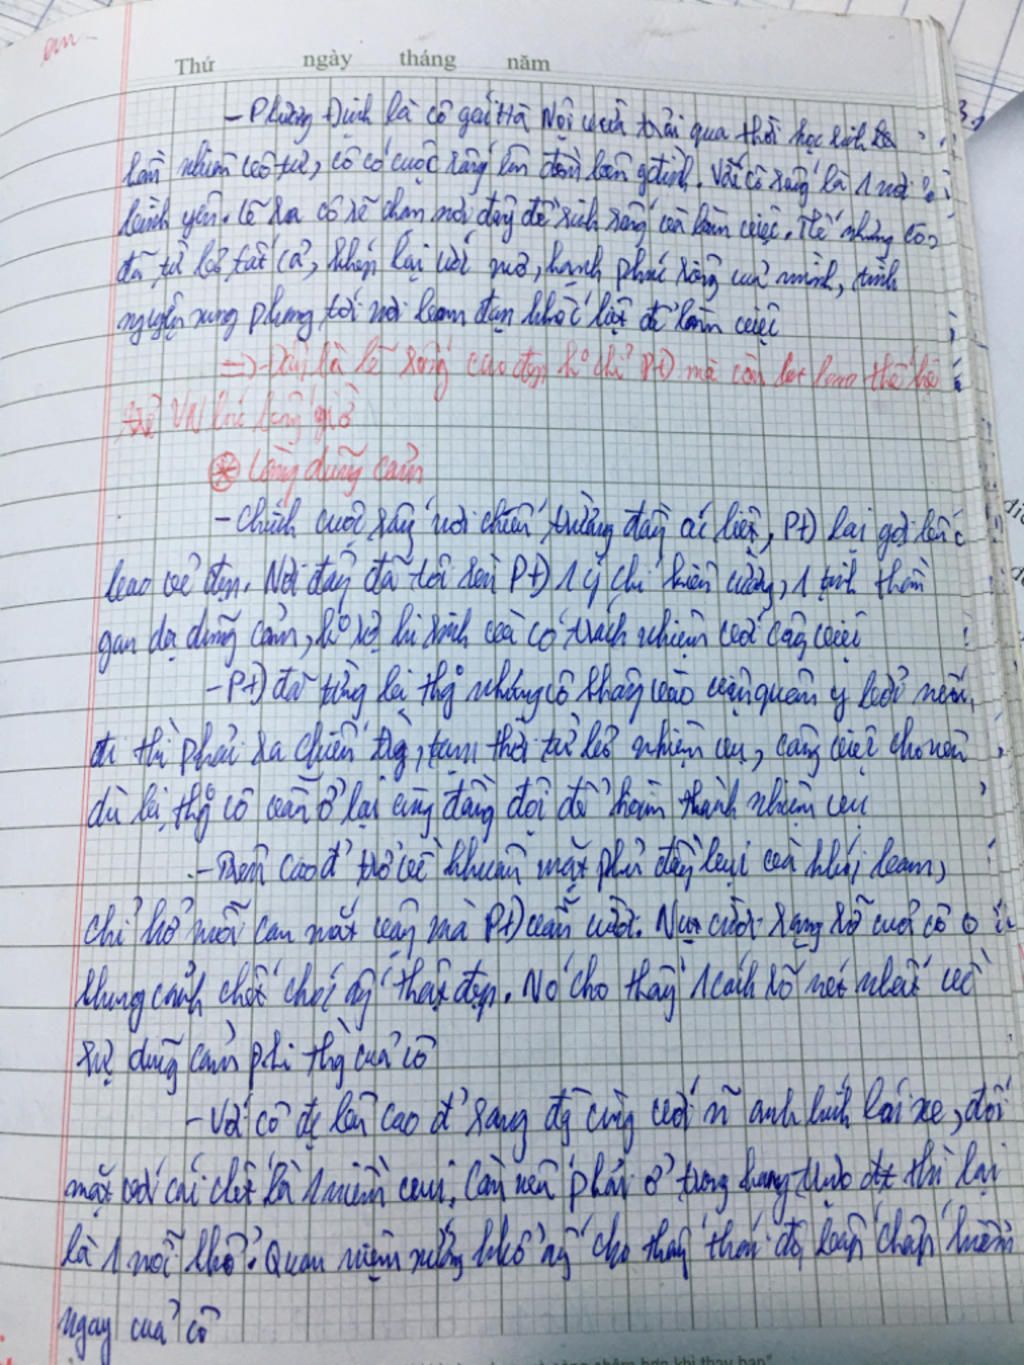 Thứ ngày tháng năm
- Phương Định là cô gái Hà Nội vừa trải qua thời học sinh
hồn nhiên vô tư, cô có cuộc sống êm đềm bên gđình. Với cô sống là 1 nơi
bình yên. Lẽ ra cô sẽ chọn nơi đây để sinh sống và làm việc. Thế nhưng cô
đã từ bỏ tất cả, khép lại ước mơ, hạnh phúc riêng của mình, tình
nguyện xung phong tới nơi bom đạn khốc liệt để làm việc
=> Đây là lẽ sống cao đẹp k° chỉ PĐ mà còn bao thế hệ
trẻ VN lúc bấy giờ
* Lòng dũng cảm
- Chính cuộc sống nơi chiến trường đầy ác liệt, PĐ lại gợi lên
bao vẻ đẹp. Nơi đây đã tôi rèn PĐ 1 ý chí kiên cường, 1 tinh thần
gan dạ dũng cảm, k° sợ hi sinh và có trách nhiệm với công việc
- PĐ đã từng bị thg nhưng cô không vào viện quân y bởi nếu
đi thì phải xa chiến trg, tạm thời từ bỏ nhiệm vụ, công việc cho nên
dù bị thg cô vẫn ở lại cùng đồng đội để hoàn thành nhiệm vụ
- Trên cao đ' trở về khuôn mặt phủ đầy bụi và khói bom,
chỉ hở mỗi con mắt vậy mà PĐ vẫn cười. Nụ cười rạng rỡ của cô ở
khung cảnh chết chóc ấy thật đẹp. Nó cho thấy 1 cách rõ nét nhất về
sự dũng cảm phi thg của cô
- Với cô đc lên cao đ' sang đg cùng với n~ anh lính lái xe, đối
mặt với cái chết là 1 niềm vui, còn nếu phải ở trong hang trực đt thì lại
là 1 nỗi khổ. Quan niệm sướng khổ ấy cho thấy thái độ bất chấp hiểm
nguy của cô